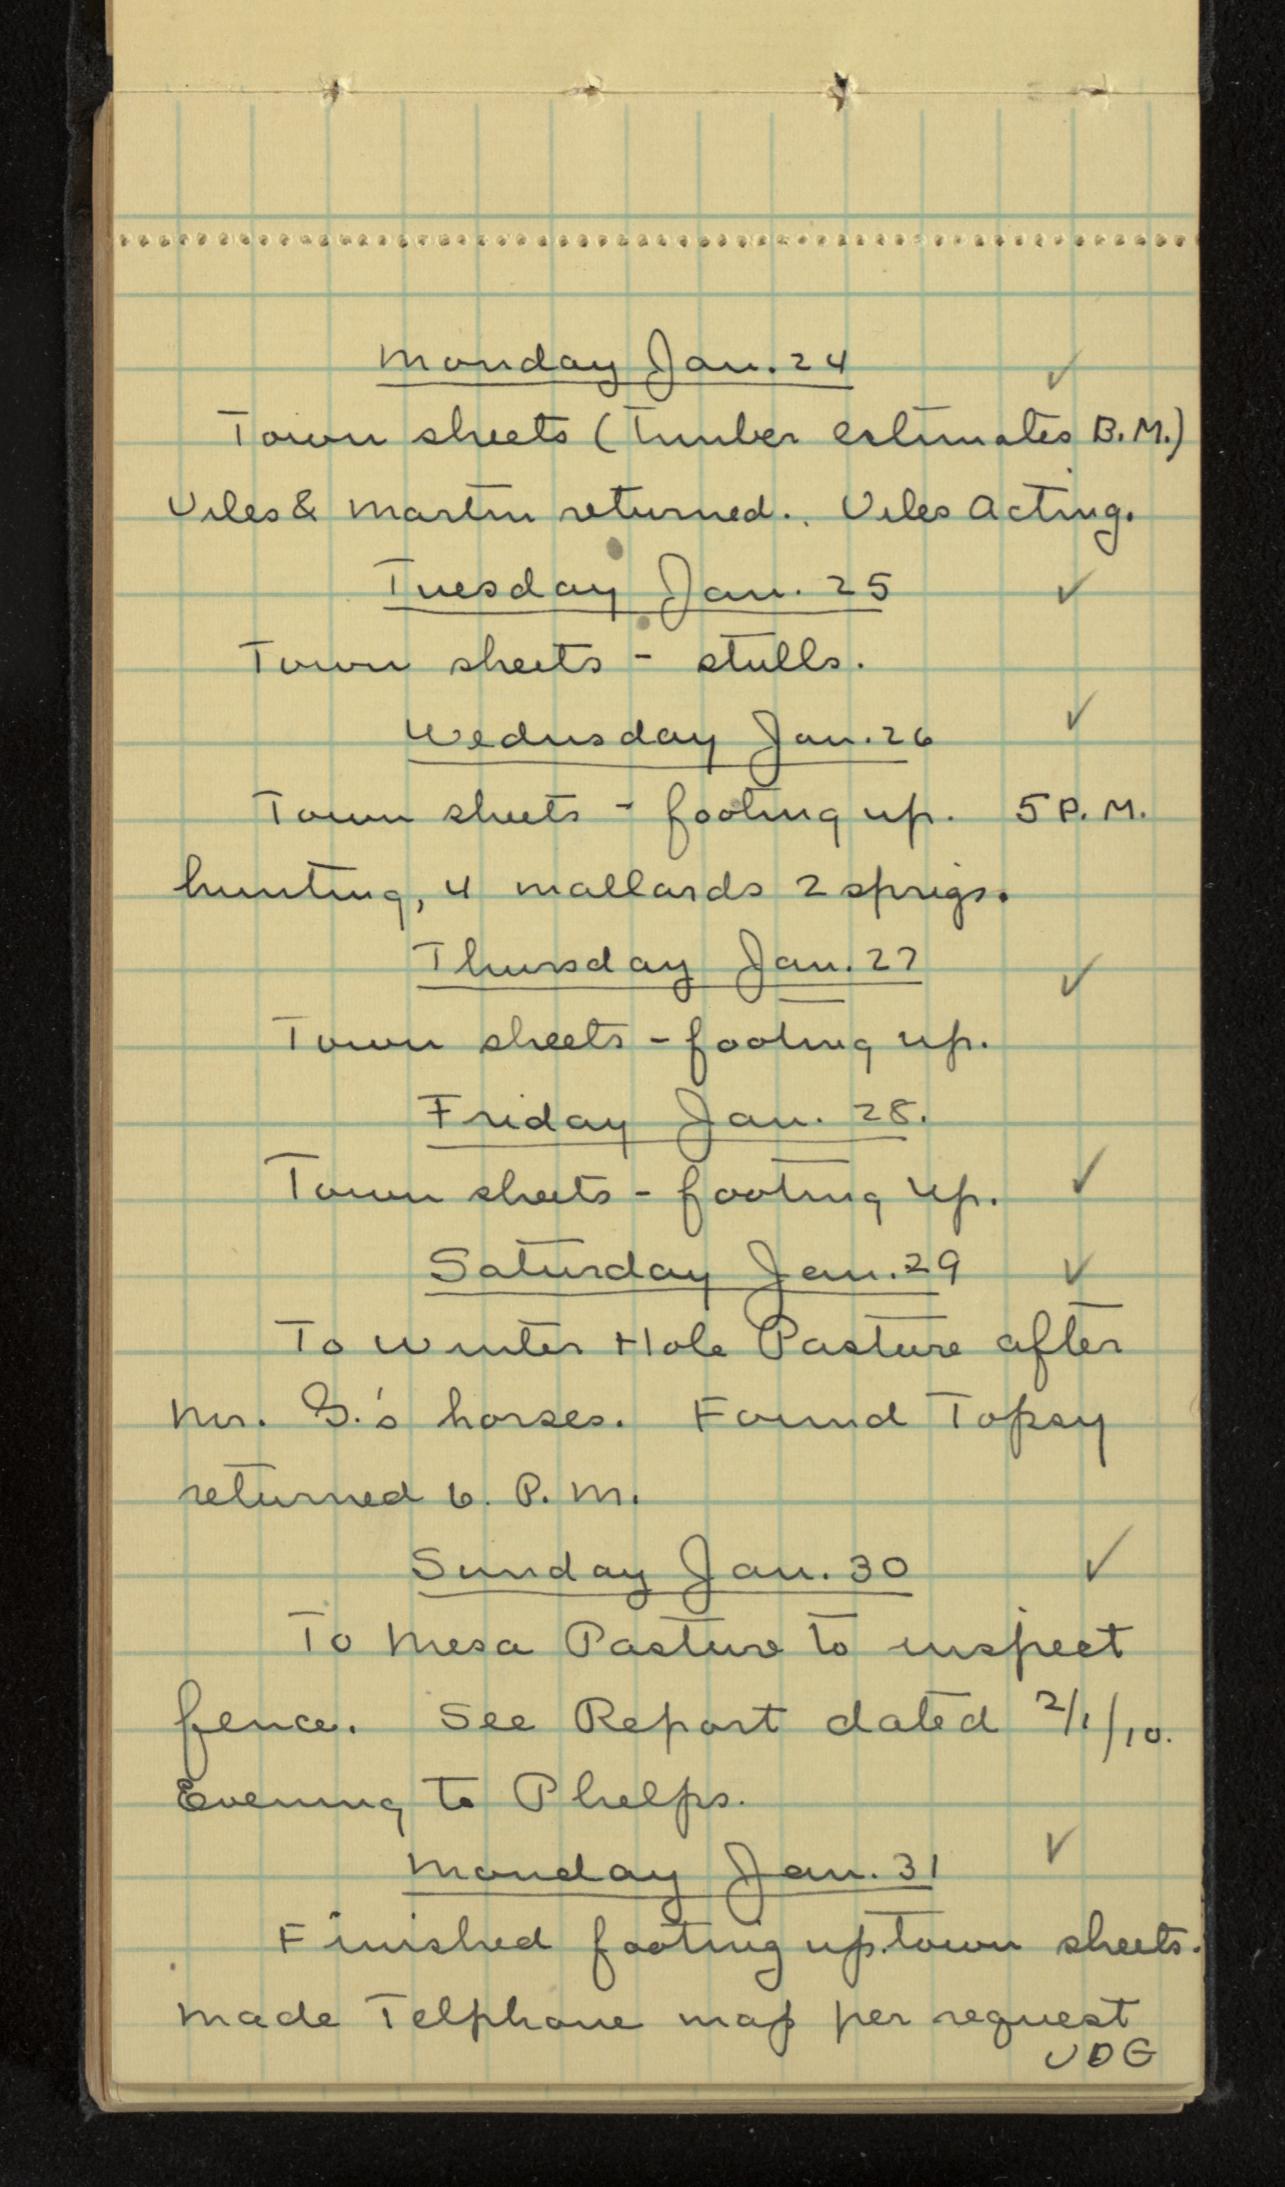 Monday Jan. 24 ✓
Town sheets (Timber estimates B.M.)
Viles & Martin returned. Viles Acting.
Tuesday Jan. 25 ✓
Town sheets - stulls.
Wednsday Jan. 26 ✓
Town sheets - footing up. 5 P.M.
hunting, 4 mallards 2 sprigs.
Thursday Jan. 27 ✓
Town sheets - footing up.
Friday Jan. 28.
Town sheets - footing up. ✓
Saturday Jan. 29 ✓
To Winter Hole Pasture after
Mr. G.'s horses. Found Topsy
returned 6. P.M.
Sunday Jan. 30 ✓
To Mesa Pasture to inspect
fence. See Report dated 2/1/10.
Evening to Phelps.
Monday Jan. 31 ✓
Finished footing up town sheets.
Made Telphone map per request
UDG